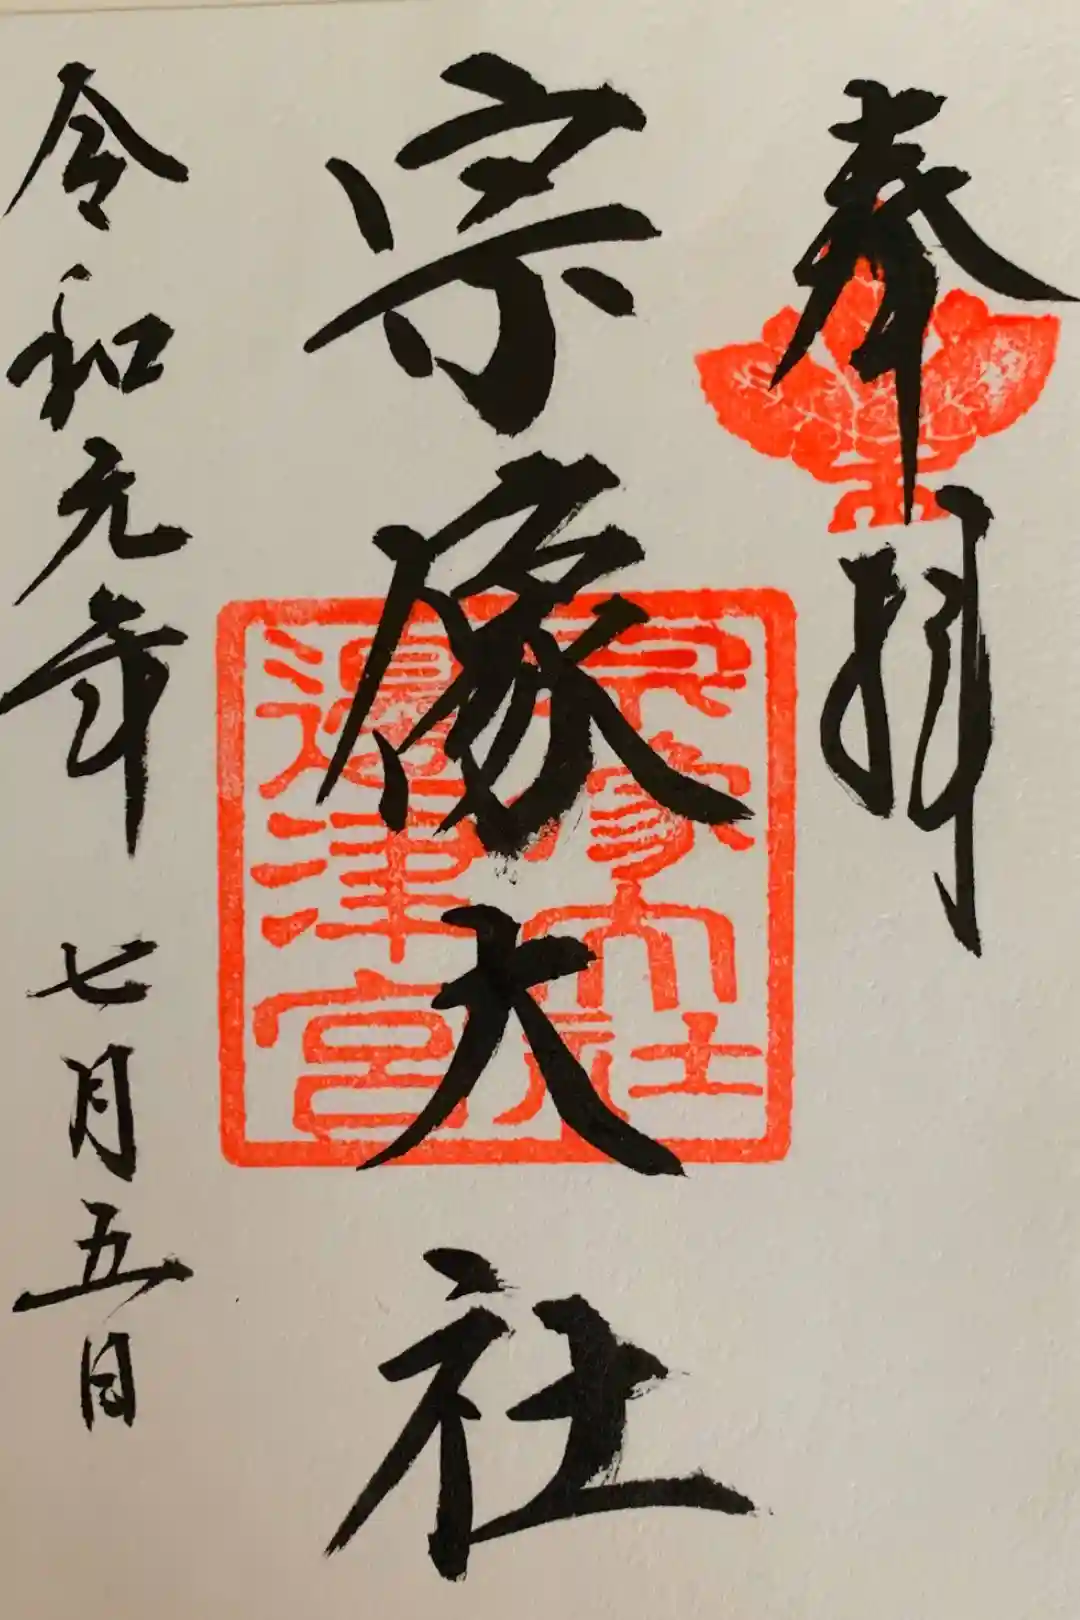 奉拝
宗像大社
宗像大社
邊津宮
令和元年 七月五日